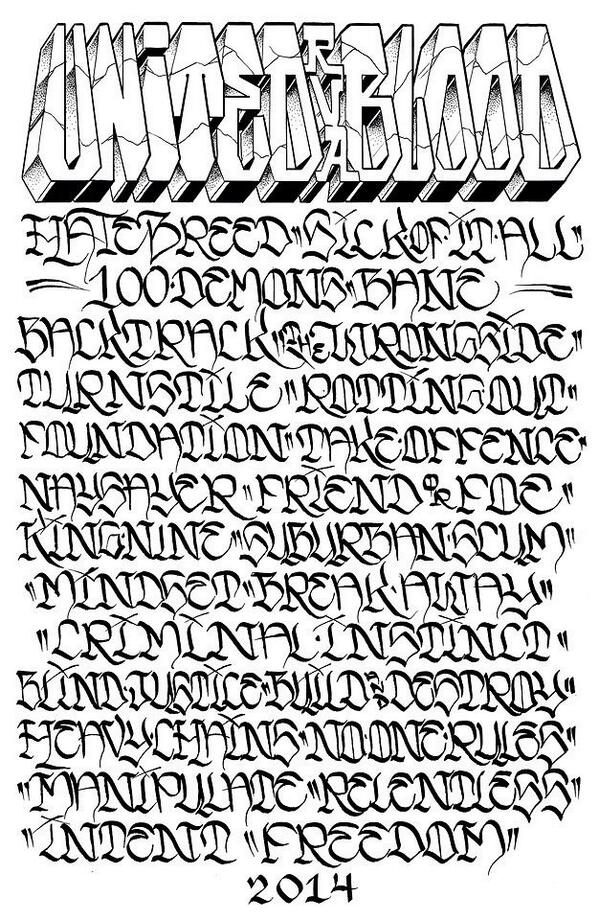 UNITED RVA BLOOD
HATEBREED " SICK·OF·IT·ALL "
100·DEMONS " BANE
BACKTRACK " THE WRONGSIDE "
TURNSTILE " ROTTING OUT "
FOUNDATION " TAKE·OFFENCE "
NAYSAYER " FRIEND OR FOE "
KING·NINE " SUBURBAN·SCUM "
" MINDSET " BREAK·AWAY "
" CRIMINAL·INSTINCT "
BLIND·JUSTICE " BUILD AND DESTROY "
HEAVY·CHAINS " NO·ONE·RULES "
" MANIPULATE " RELENTLESS "
" INTENT " FREEDOM "
2014